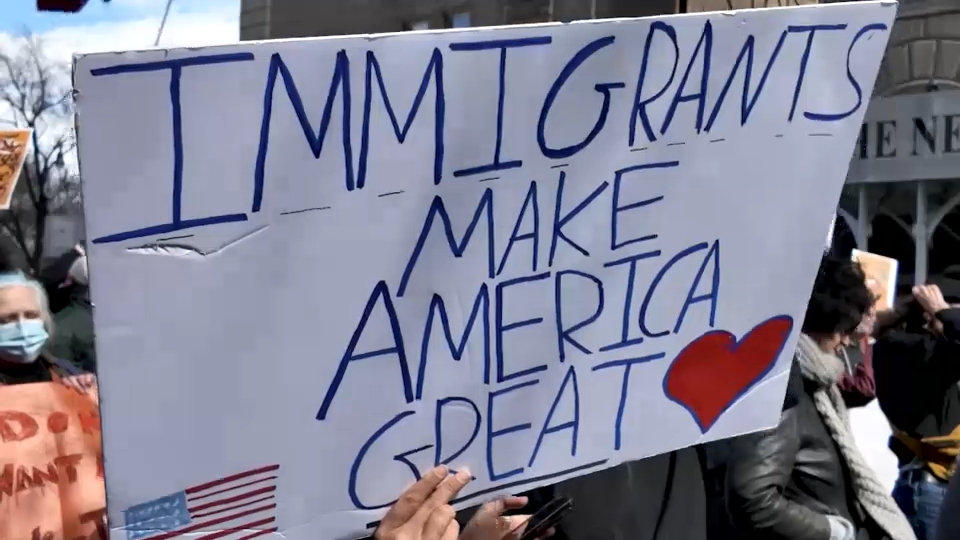 IMMIGRANTS
MAKE
AMERICA
GREAT
HE NE
WANT